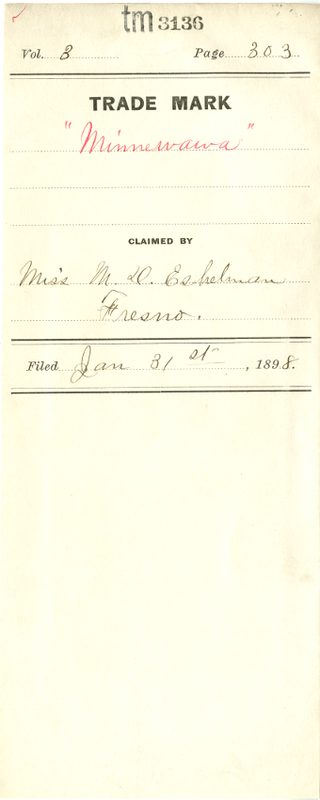 tm 3136
Vol. 3 Page 303
TRADE MARK
"Minnewawa"
CLAIMED BY
Miss M. D. Eshelman
Fresno.
Filed Jan 31st, 1898.